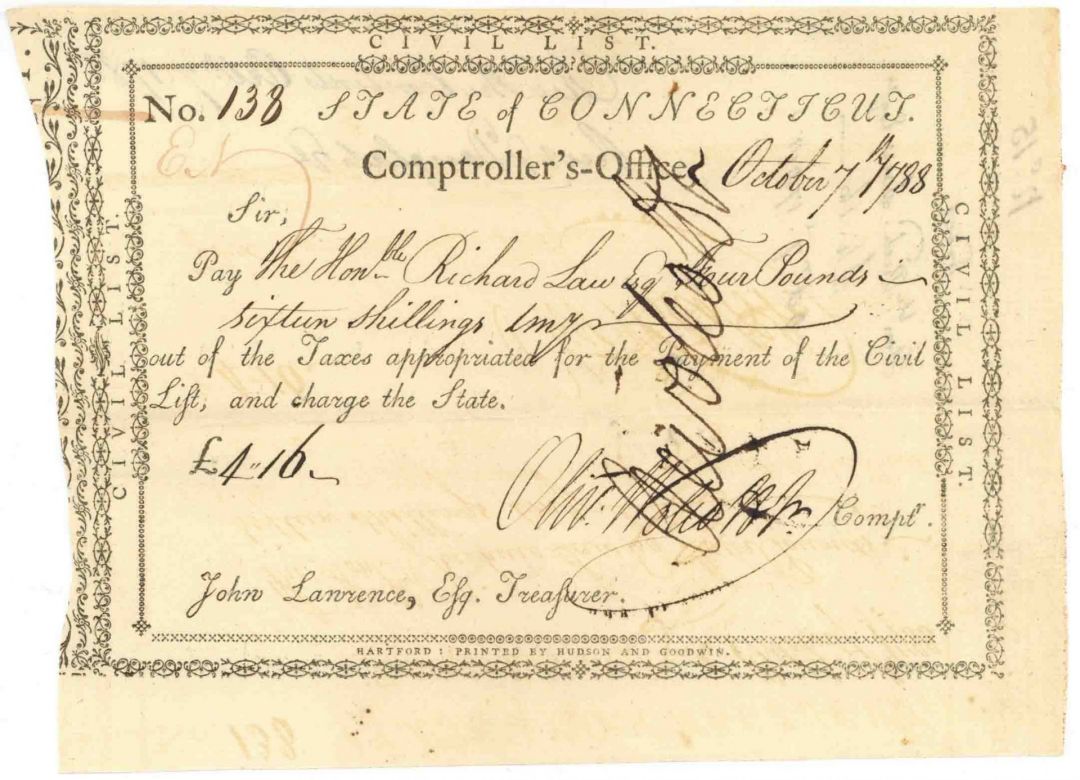 CIVIL LIST.
No. 138 STATE of CONNECTICUT.
Comptroller's-Office, October 7th 1788
Sir,
Pay The Honble Richard Law Esqr Four Pounds
sixteen shillings lmy
out of the Taxes appropriated for the Payment of the Civil
Liſt, and charge the State.
£4"16
Olivr Wolcott Jr. Comptr.
John Lawrence, Eſq. Treaſurer.
HARTFORD: PRINTED BY HUDSON AND GOODWIN.
CIVIL LIST.
CIVIL LIST.
EN
138